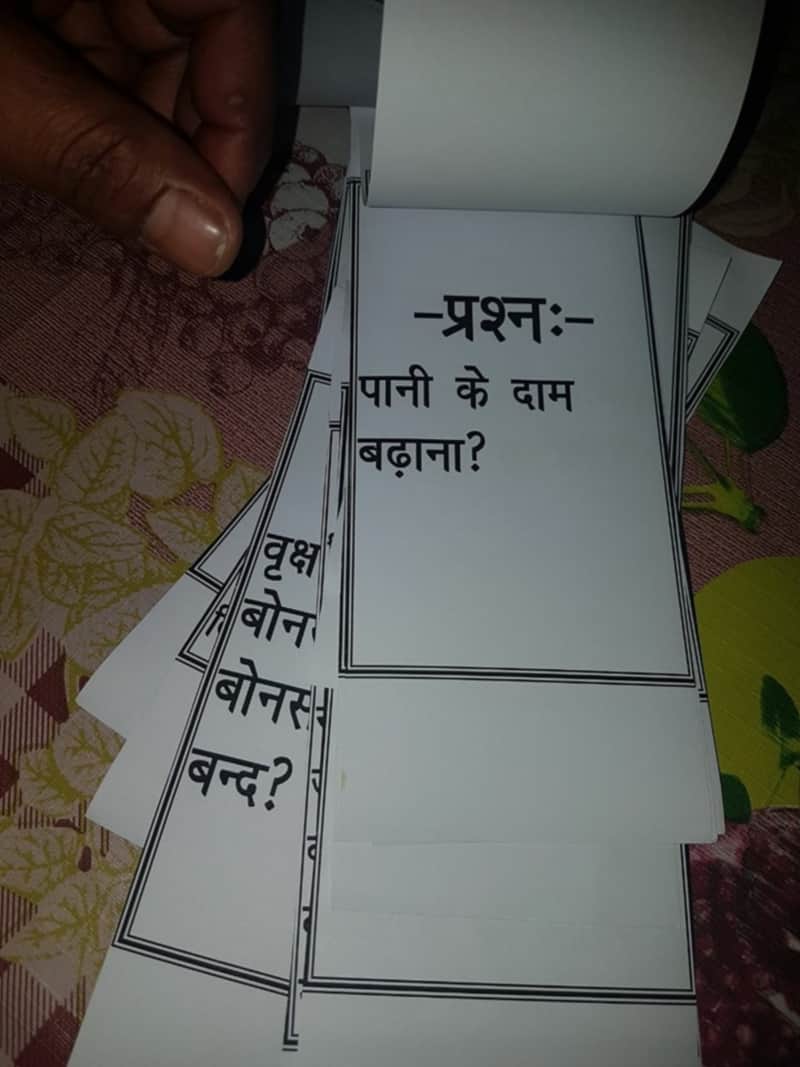 -प्रश्नः-
पानी के दाम
बढ़ाना?
वृक्ष
बोन
बोनस
बन्द?